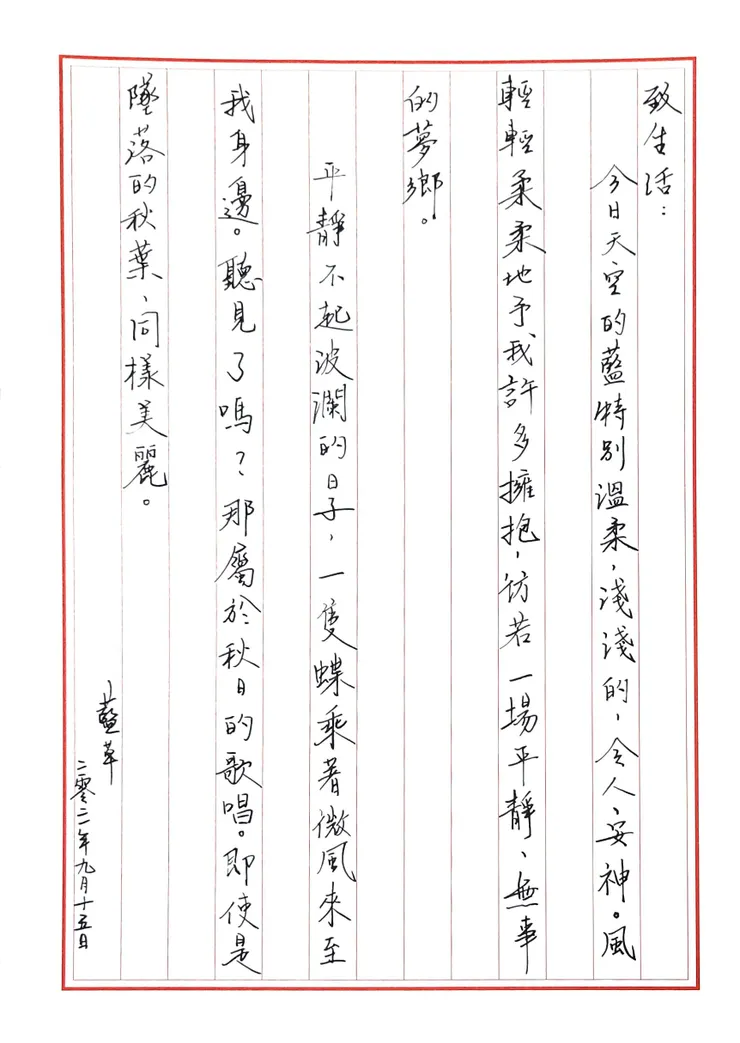 致生活：
今日天空的藍特別溫柔，淺淺的，令人安神。風
輕輕柔柔地予我許多擁抱，彷若一場平靜、無事
的夢鄉。
平靜不起波瀾的日子，一隻蝶乘著微風來至
我身邊。聽見了嗎？那屬於秋日的歌唱。即使是
墜落的秋葉、同樣美麗。
藍草
二零二二年九月十五日